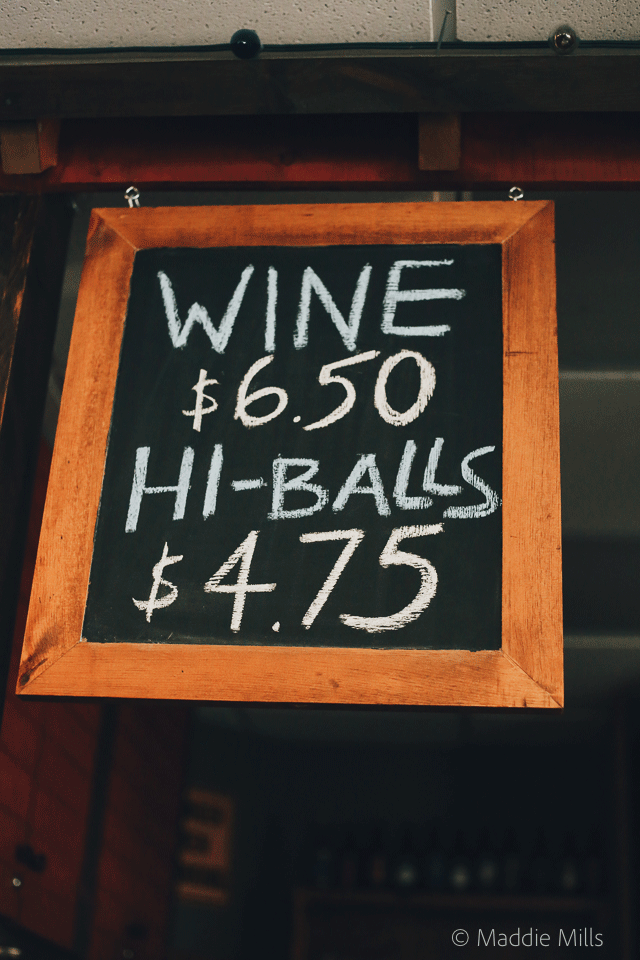 WINE
$6.50
HI-BALLS
$4.75
© Maddie Mills